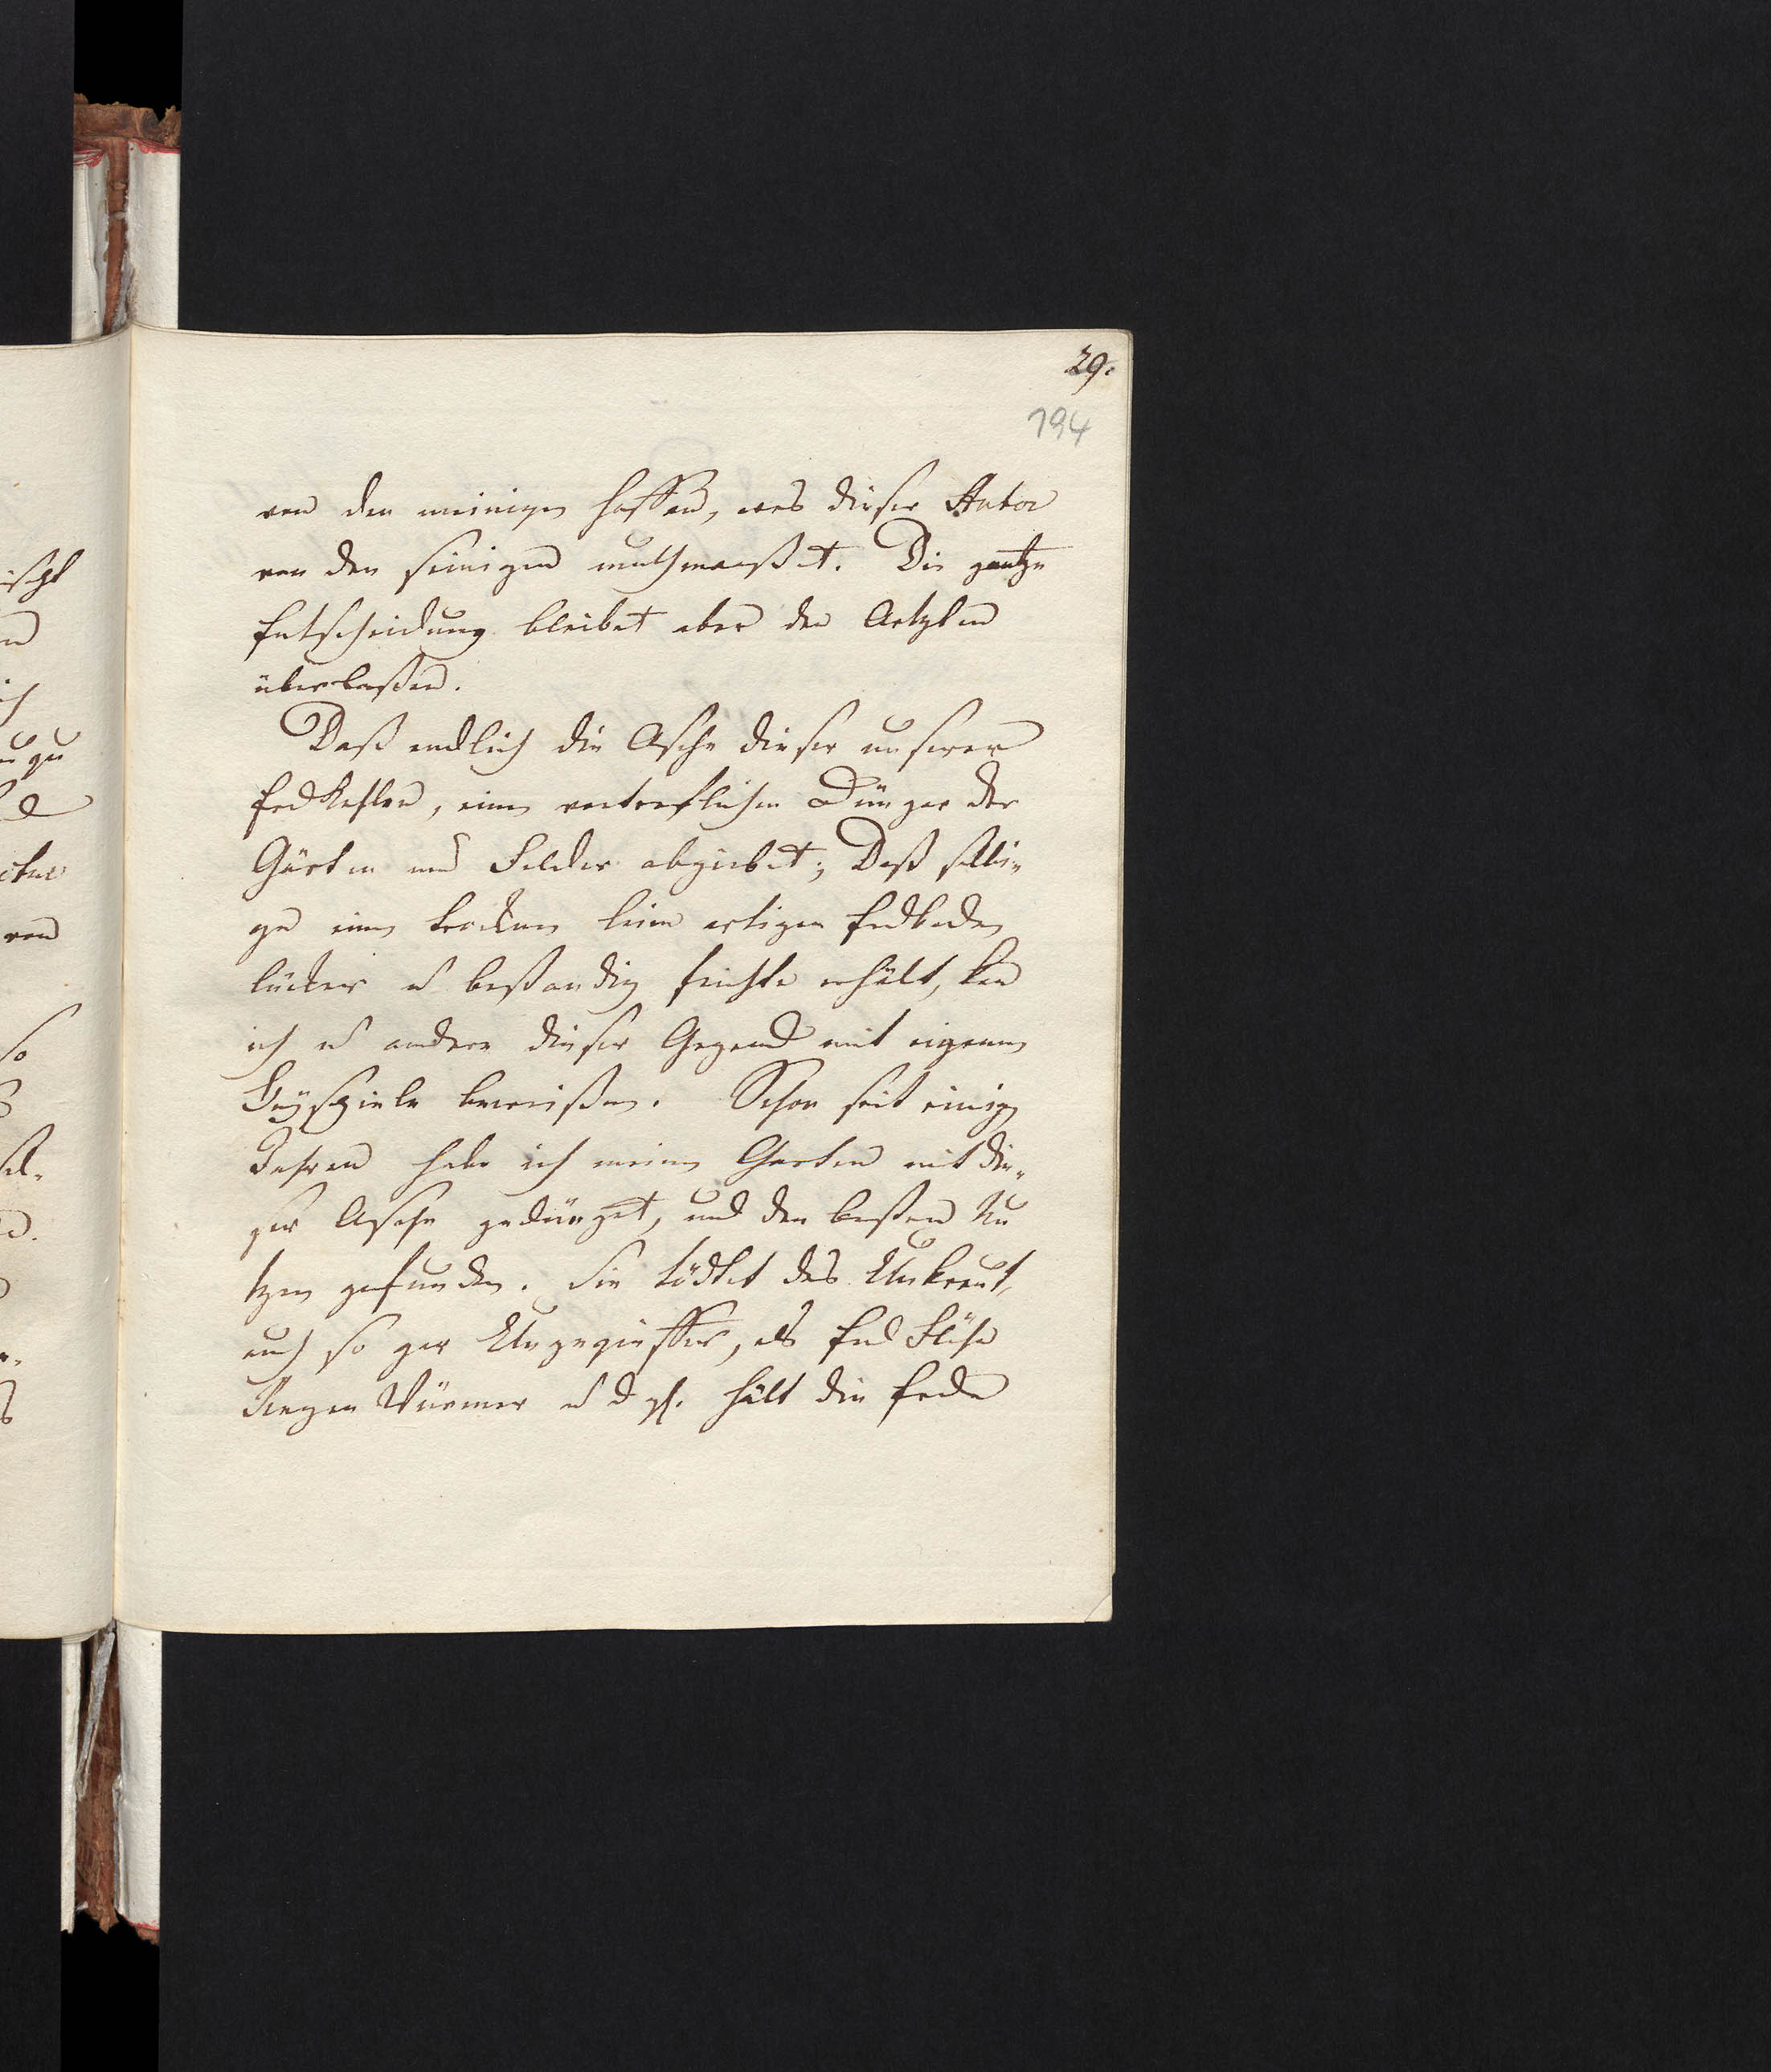 29.
194
von den meinigen hoffen, was dieser Autor
von den seinigen muthmaßet. Die gantze
Entscheidung bleibet aber den Aertzten
überlaßen.
Daß endlich die Asche dieser unserer
Erdkohlen, einen vortreflichen Dünger der
Gärten und Felder abgiebet; Daß selbi-
ge einen trocknen leim artigen Erdboden
lücker u beständig feuchte erhält, kan
ich u andere dieser Gegend mit eigenen
Beyspiele beweißen. Schon seit einigen
Jahren habe ich meinen Garten mit die-
ser Asche gedünget, und den besten Nu
tzen gefunden. Sie tödtet das Unkraut,
auch so gar Ungeziffer, als Erd Flöhe
Regen Würmer u d gl. hält die Erde